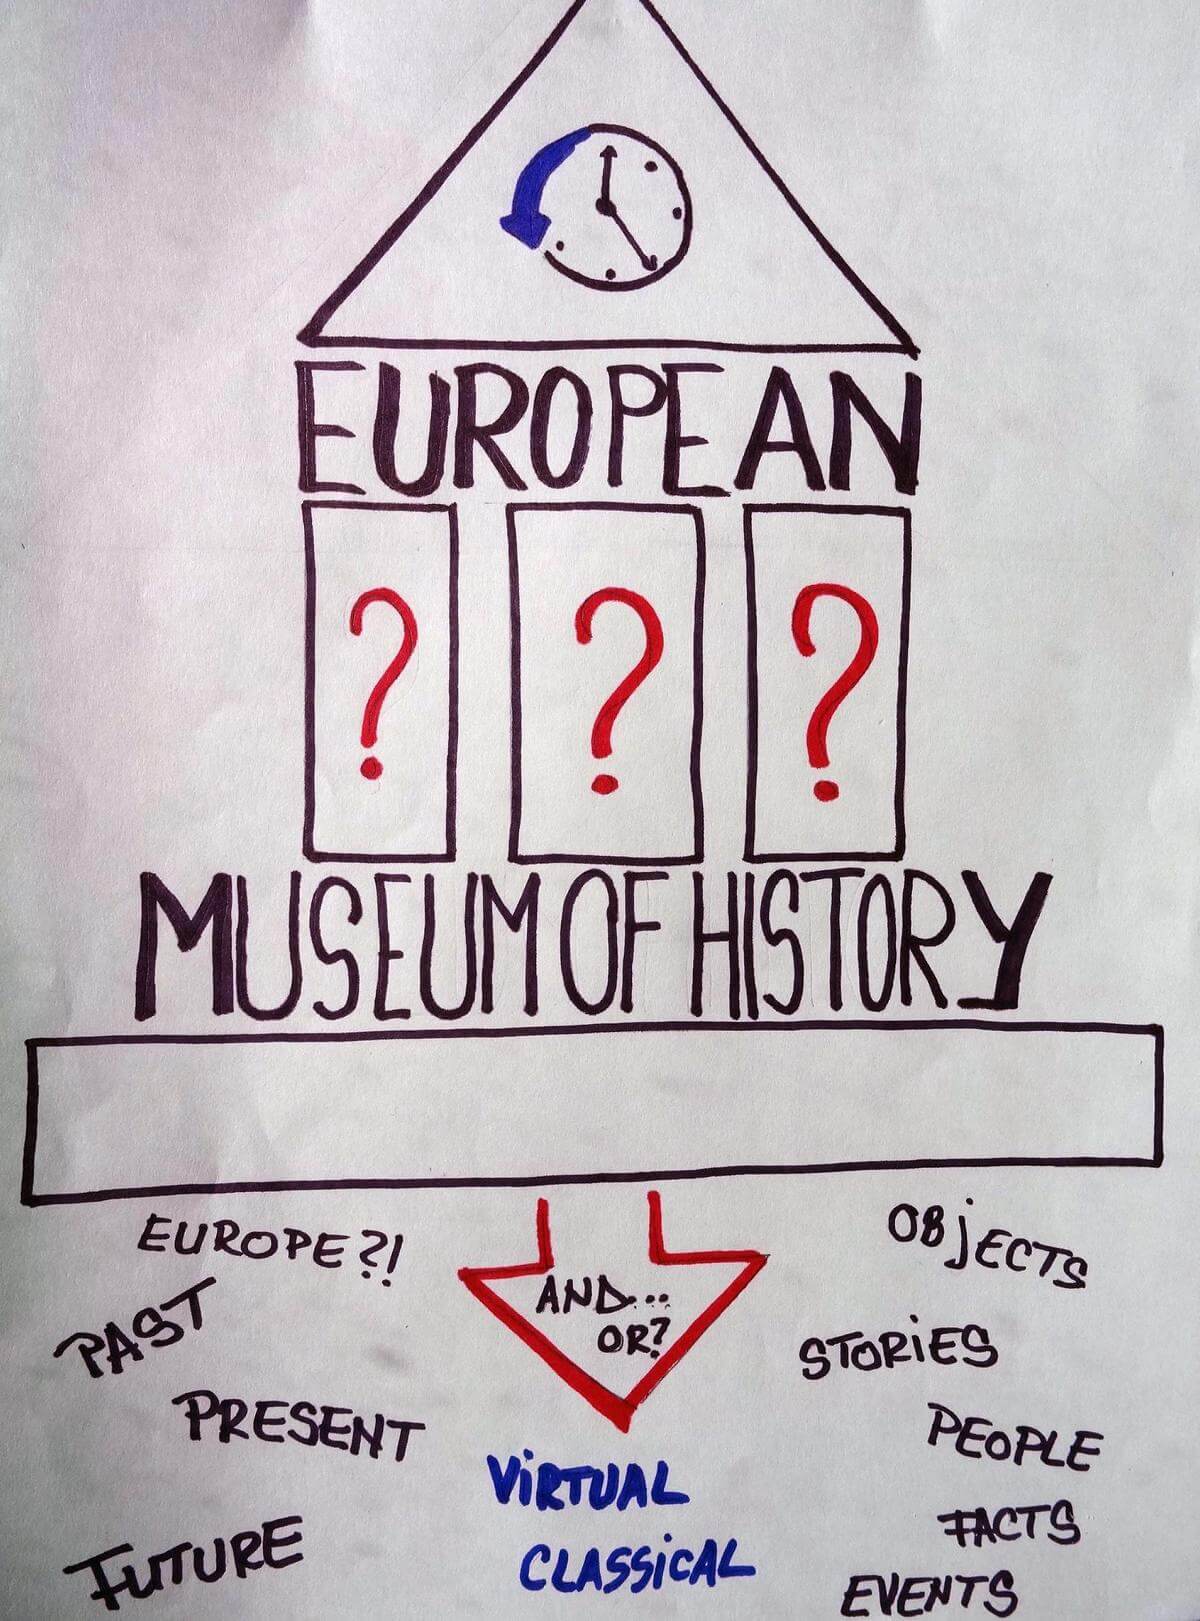 EUROPEAN
? ? ?
MUSEUM OF HISTORY
EUROPE?!
PAST
PRESENT
FUTURE
AND...
OR?
ViRTUAL
CLASSiCAL
OBjECTS
STORiES
PEOPLE
FACTS
EVENTS